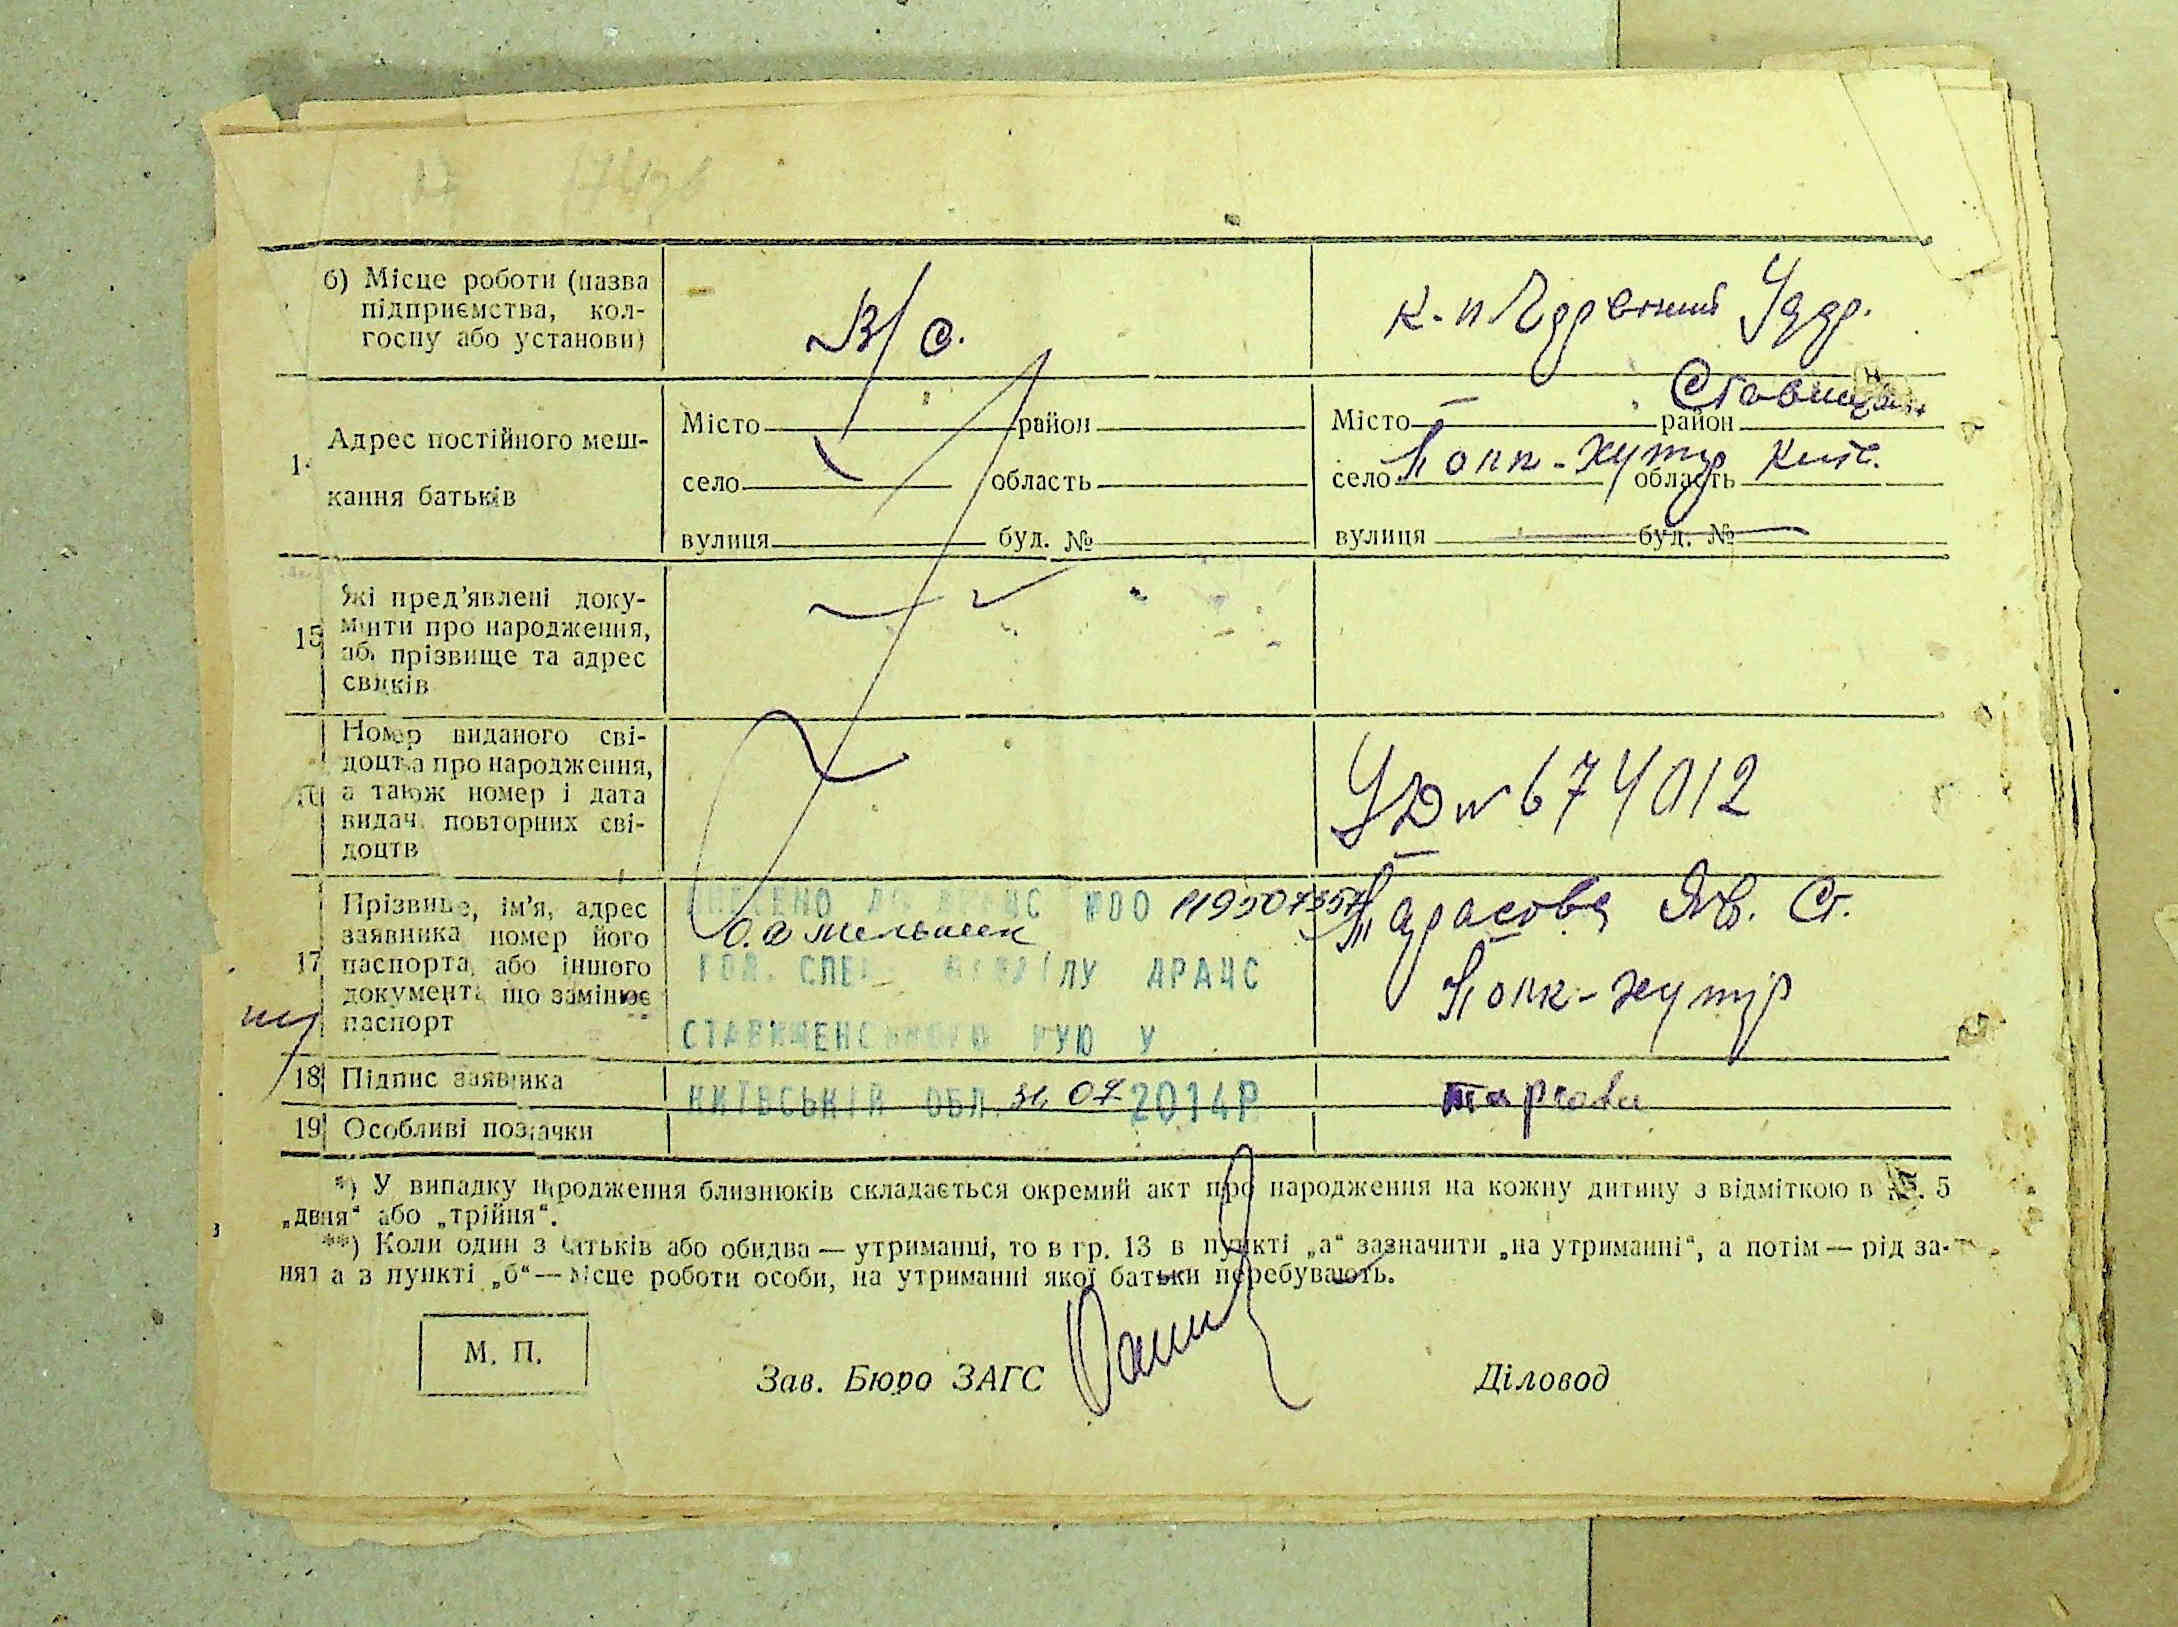 б) Місце роботи (назва
підприємства, кол-
госпу або установи)
В/с.
к-п Червоний
1
Адрес постійного меш-
кання батьків
Місто район
село область
вулиця буд. №
Ставищан.
Місто район
село Попп-хутір область Київ.
вулиця буд. №
15
Які пред'явлені доку-
менти про народження,
або прізвище та адрес
свідків
Номер виданого сві-
доцтва про народження,
а також номер і дата
видач. повторних сві-
доцтв
УД № 674012
17
Прізвище, ім'я, адрес
заявника номер його
паспорта або іншого
документа що замінює
паспорт
ВНЕСЕНО ДО ДРАЦС №00 119507357
О.О Мельник
ГОЛ. СПЕЦ. ВІДДІЛУ ДРАЦС
СТАВИЩЕНСЬКОГО РУЮ У
КИЇВСЬКІЙ ОБЛ. 31.07 2014Р
Тарасова Яв. Ст.
Попк-хутір
18 Підпис заявника
19 Особливі позначки
*) У випадку народження близнюків складається окремий акт про народження на кожну дитину з відміткою в гр. 5
„двня“ або „трійня“.
**) Коли один з батьків або обидва — утриманці, то в гр. 13 в пункті „а“ зазначити „на утриманні“, а потім — рід за-
няття а в пункті „б“ — місце роботи особи, на утриманні якої батьки перебувають.
М. П.
Зав. Бюро ЗАГС
Діловод